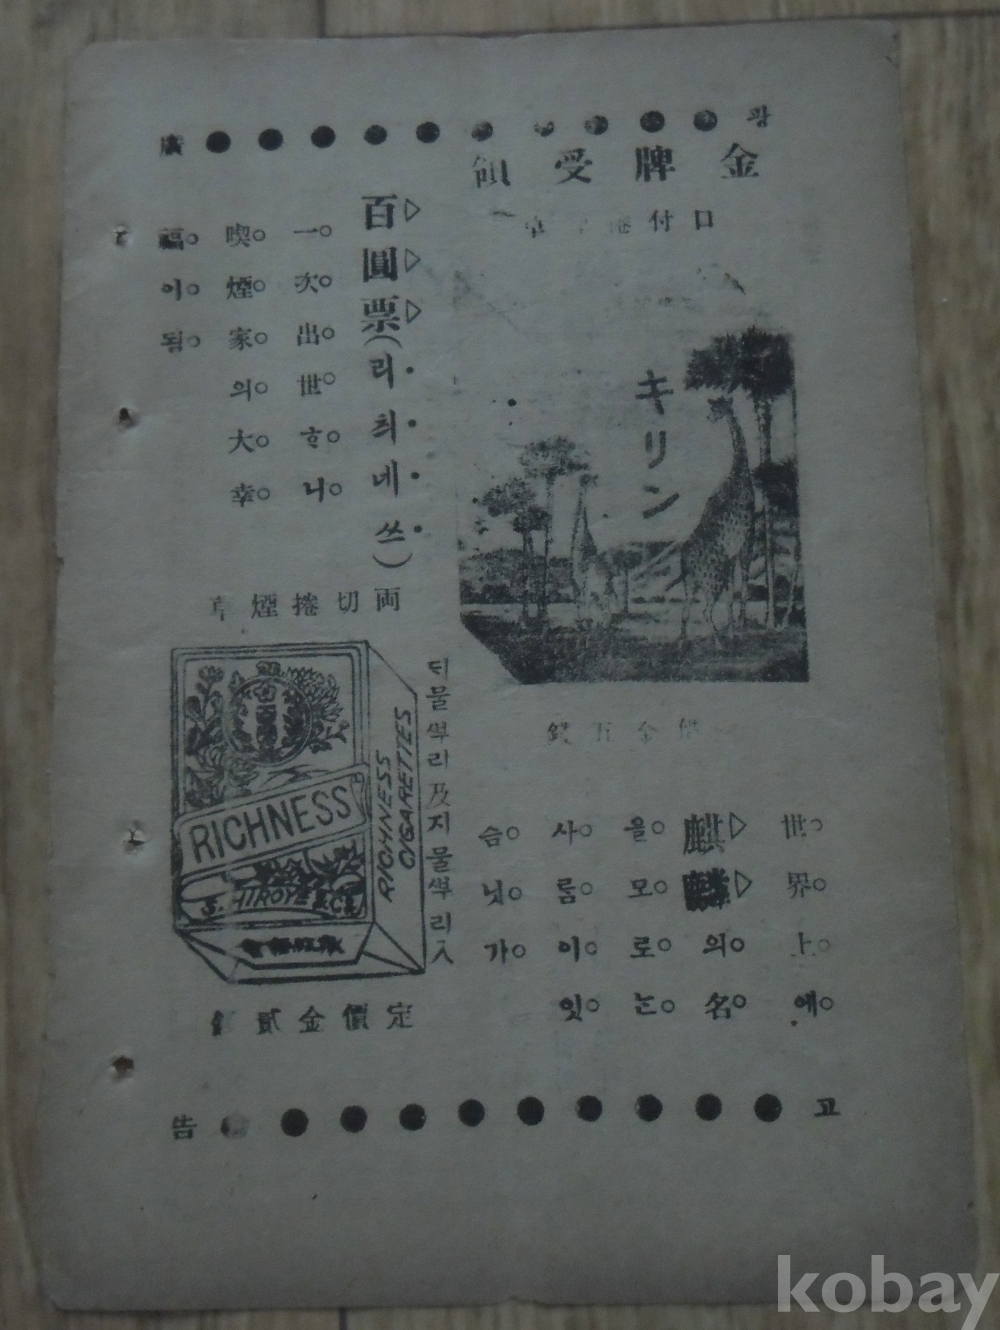 廣 광
金牌受領
口付捲草
キリン
價金五錢
世界上에
麒麟의名
을모로는
사름이잇
슴닛가
百圓票(리최네쓰)
一次出世ㅎ니
喫煙家의大幸
福이됨
両切捲煙草
RICHNESS
RICHNESS
CIGARETTES
HIROYE & CO
뒤물뿌리及지물뿌리入
定價金貳錢
告 고
kobay